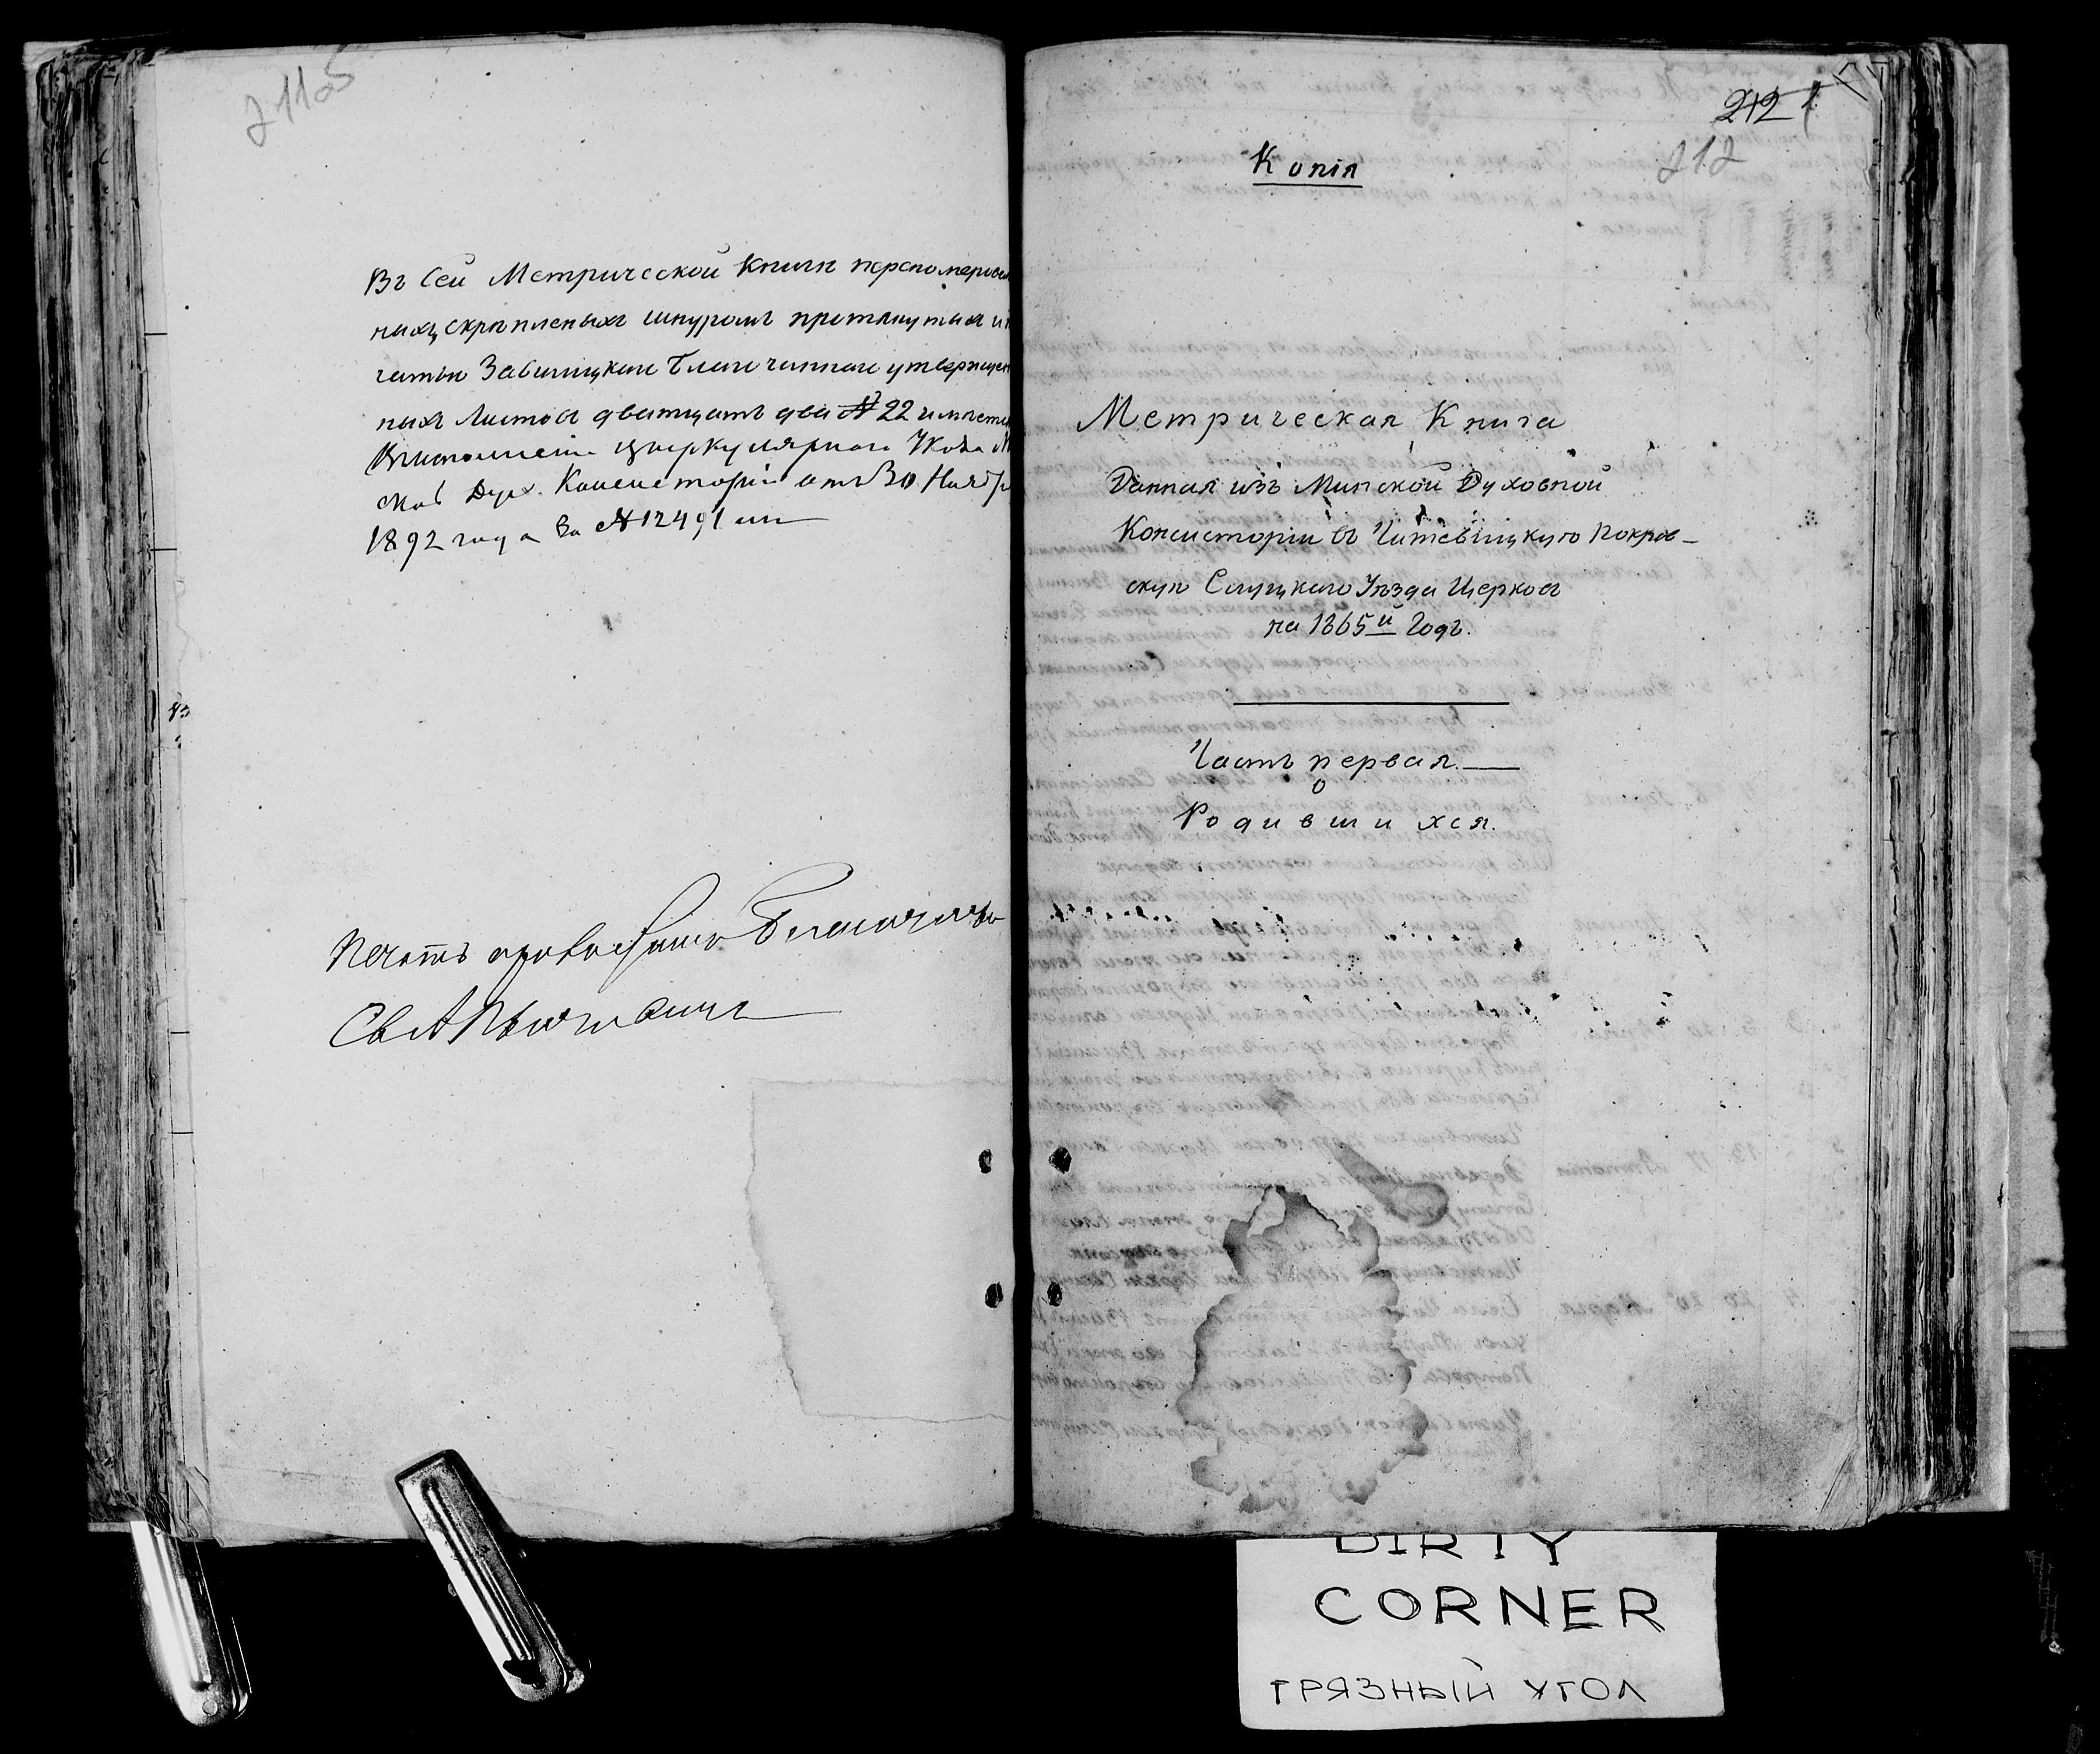 211об
Въ сей Метрической Книги перенумерован
ныхъ, скрепленыхъ шнуромъ протянутыхъ и п
чатью Завшицкаго Благочиннаго утвержден
ныхъ листовъ двадцать два № 22 имѣет
циркулярнаго Указа М
ской Дух. Консисторіи отъ 30 Ноябр
1892 года за № 12491 мъ
Печать приложилъ Благочинный
Свящ
212 1
212
Копія
Метрическая Книга
Данная изъ Минской Духовной
Консисторіи въ Читевицкую Покров-
скую Слуцкаго Уѣзда Церковь
на 1865й Годъ.
Часть первая.
о
Родившихся.
DIRTY
CORNER
ГРЯЗНЫЙ УГОЛ